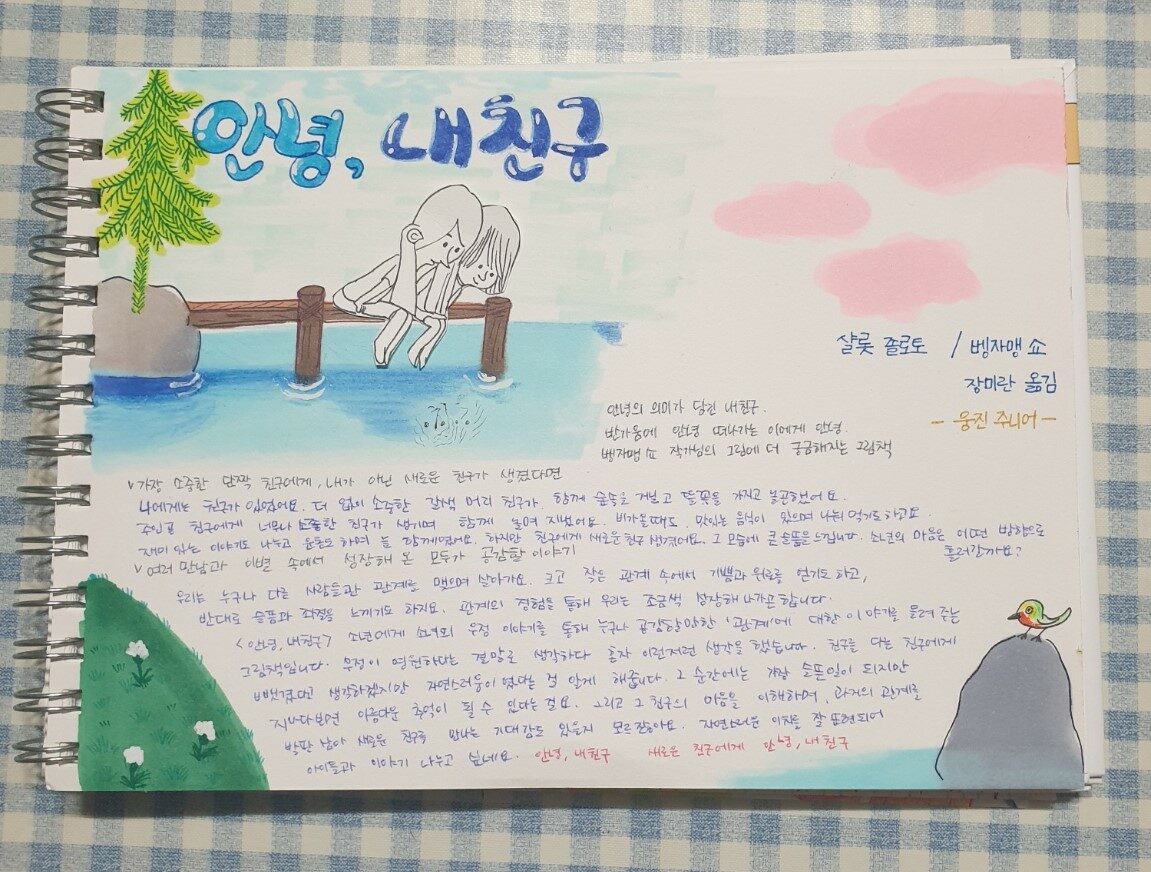 안녕, 내친구
샬롯 졸로토 / 벵자맹 쇼
장미란 옮김
- 웅진 주니어 -
안녕의 의미가 담긴 내친구.
반가움에 안녕 떠나가는 이에게 안녕.
벵자맹 쇼 작가님의 그림에 더 궁금해지는 그림책
v 가장 소중한 단짝 친구에게, 내가 아닌 새로운 친구가 생겼다면
나에게는 친구가 있었어요. 더 없이 소중한 갈색 머리 친구가. 함께 숲속을 거닐고 들꽃을 가지고 놀곤했어요.
주인공 친구에게 너무나 소중한 친구가 생기며 함께 놀며 지냈어요. 비가올때도 맛있는 음식이 있으며 나눠 먹기도하고요.
재미 있는 이야기도 나누고 운동도 하며 늘 함께였어요. 하지만 친구에게 새로운 친구 생겼어요. 그 모습에 큰 슬픔을 느낍니다. 소년의 마음은 어떤 방향으로
흘러갈까요?
v 여러 만남과 이별 속에서 성장해 온 모두가 공감할 이야기
우리는 누구나 다른 사람들과 관계를 맺으며 살아가요. 크고 작은 관계 속에서 기쁨과 위로를 얻기도 하고,
반대로 슬픔과 좌절을 느끼기도 하지요. 관계의 경험을 통해 우리는 조금씩 성장해 나가곤합니다.
<안녕, 내친구> 소년에게 소녀의 우정 이야기를 통해 누구나 공감할만한 '관계'에 대한 이야기를 들려 주는
그림책입니다. 우정이 영원하다는 결말로 생각하다 혼자 이런저런 생각을 했습니다. 친구를 다른 친구에게
빼앗겼다고 생각하겠지만 자연스러움이였다는 걸 알게 해줍니다. 그 순간에는 가장 슬픈일이 되지만
지나다보면 아름다운 추억이 될 수 있다는 걸요. 그리고 그 친구의 마음을 이해하며, 과거의 관계를
발판 삼아 새로운 친구를 만나는 기대감도 있을지 모르잖아요. 자연스러운 이치를 잘 표현되어
아이들과 이야기 나누고 싶네요. 안녕, 내친구 새로운 친구에게 안녕, 내친구